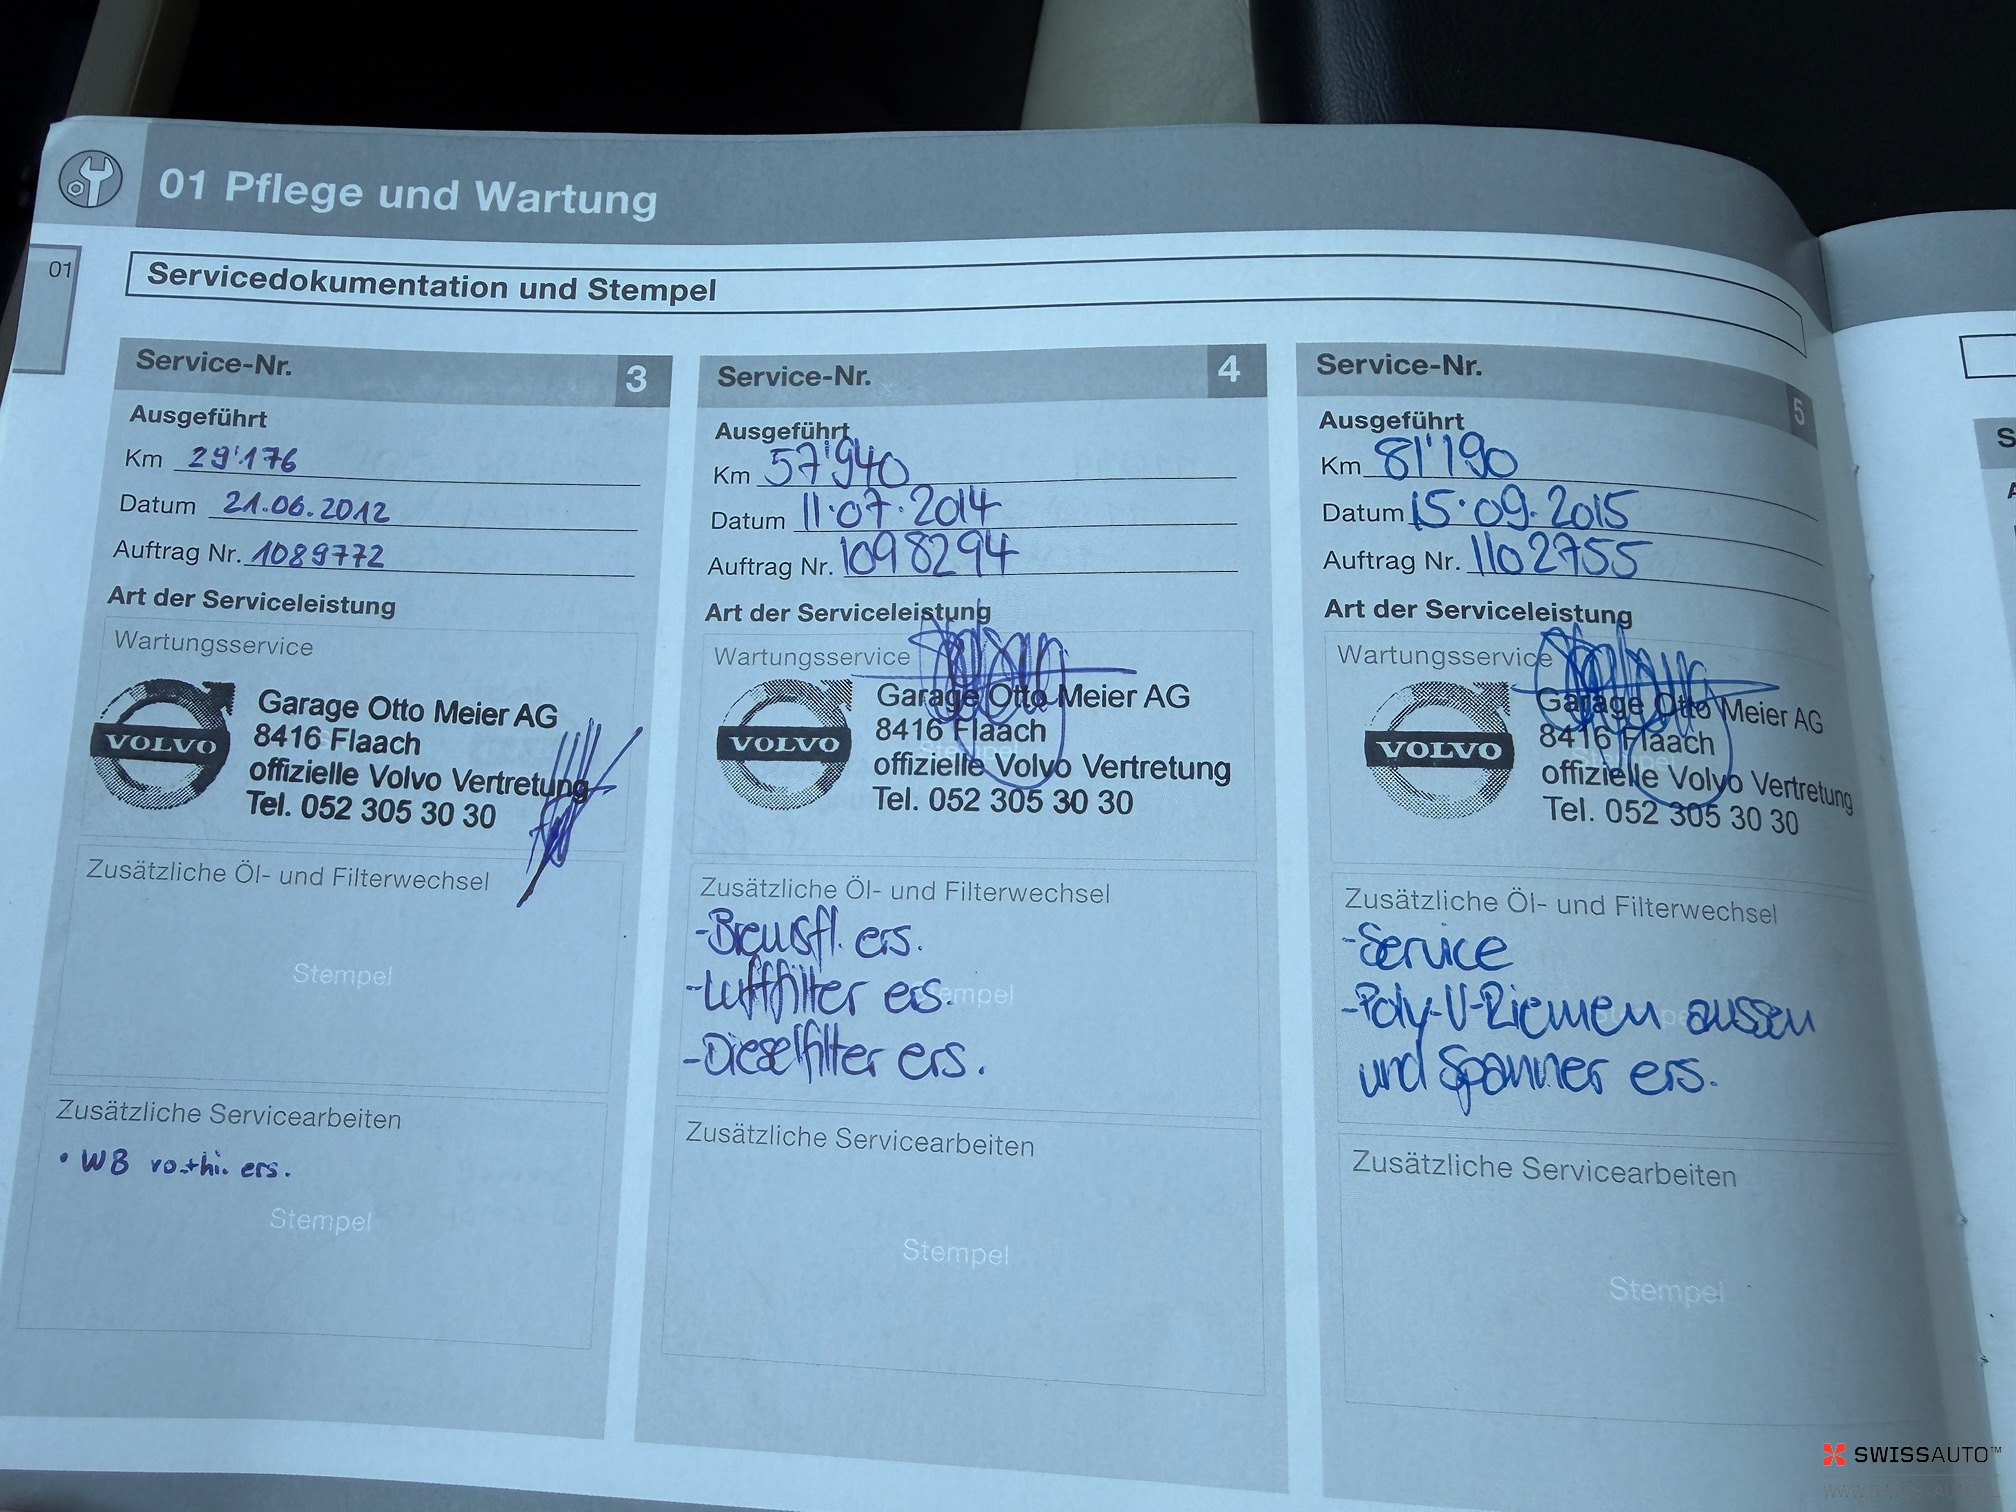 01 Pflege und Wartung
01
Servicedokumentation und Stempel
Service-Nr. 3
Ausgeführt
Km 29'176
Datum 21.06.2012
Auftrag Nr. 1089772
Art der Serviceleistung
Wartungsservice
VOLVO
Garage Otto Meier AG
8416 Flaach
offizielle Volvo Vertretung
Tel. 052 305 30 30
Zusätzliche Öl- und Filterwechsel
Stempel
Zusätzliche Servicearbeiten
• WB ers.
Stempel
Service-Nr. 4
Ausgeführt
Km 57'940
Datum 11.07.2014
Auftrag Nr. 1098294
Art der Serviceleistung
Wartungsservice
Stempel
VOLVO
Garage Otto Meier AG
8416 Flaach
offizielle Volvo Vertretung
Tel. 052 305 30 30
Zusätzliche Öl- und Filterwechsel
-Bremsfl. ers.
-Luftfilter ers.
Stempel
-Dieselfilter ers.
Zusätzliche Servicearbeiten
Stempel
Service-Nr. 5
Ausgeführt
Km 81'190
Datum 15.09.2015
Auftrag Nr. 1102755
Art der Serviceleistung
Wartungsservice
VOLVO
Garage Otto Meier AG
8416 Flaach
offizielle Volvo Vertretung
Tel. 052 305 30 30
Zusätzliche Öl- und Filterwechsel
-Service
-Poly-V-Riemen aussen
und Spanner ers.
Zusätzliche Servicearbeiten
Stempel
SWISSAUTO™